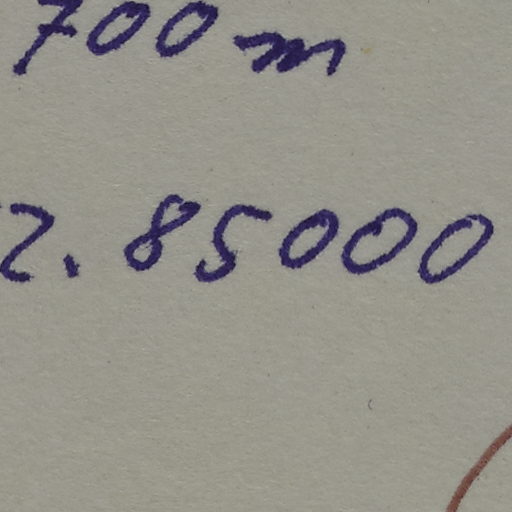 700 m
2. 85000